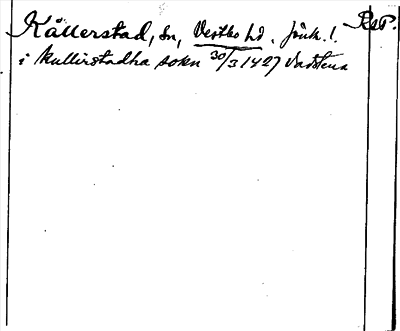 Kållerstad, sn, Vestbo hd. Jönk. l. Rep.
i kullirstadha sokn 30/3 1427 Vadstena